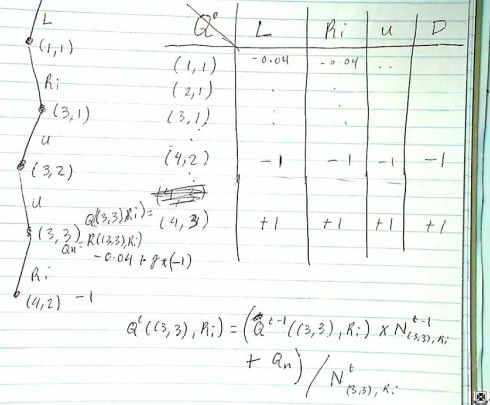 L
(1,1)
Ri
(3,1)
u
(3,2)
u
Q((3,3),Ri)=
(3,3)
Qn = R((3,3),Ri)
-0.04 + g x (-1)
Ri
(4,2) -1
Q⁰ L Ri u D
(1,1) -0.04 -0.04 ..
(2,1) . .
(3,1) : :
:
(4,2) -1 -1 -1 -1
(4,3) +1 +1 +1 +1
Qᵗ((3,3), Ri) = (Qᵗ⁻¹((3,3), Ri) x Nᵗ⁻¹(3,3), Ri
+ Qn) / Nᵗ(3,3), Ri